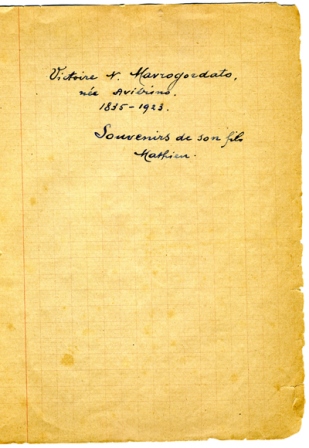 Victoire N. Mavrogordato,
née Aviérino.
1835-1923.
Souvenirs de son fils
Mathieu.